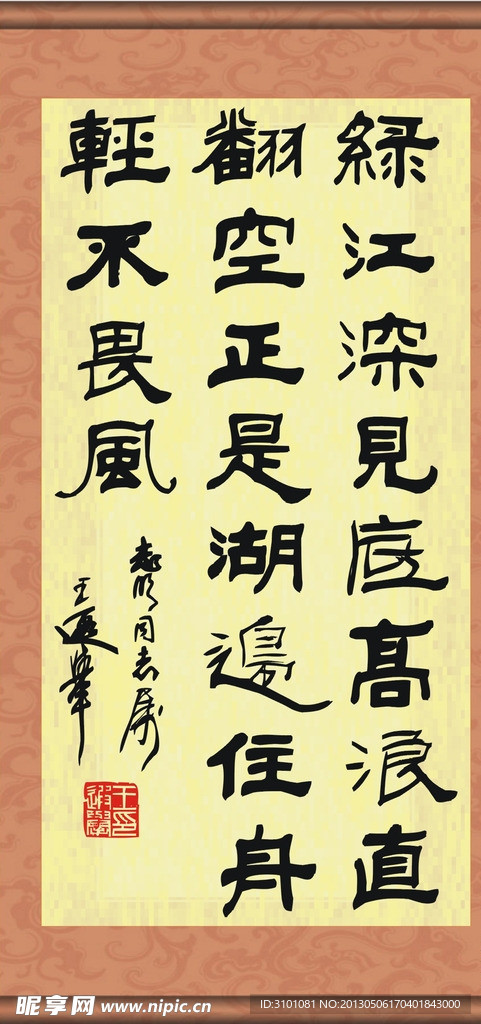 綠江深見底髙浪直
翻空正是湖邊住舟
輕不畏風
志明同志属
王遐舉
王遐舉印
昵享网 www.nipic.cn
ID:3101081 NO:20130506170401843000